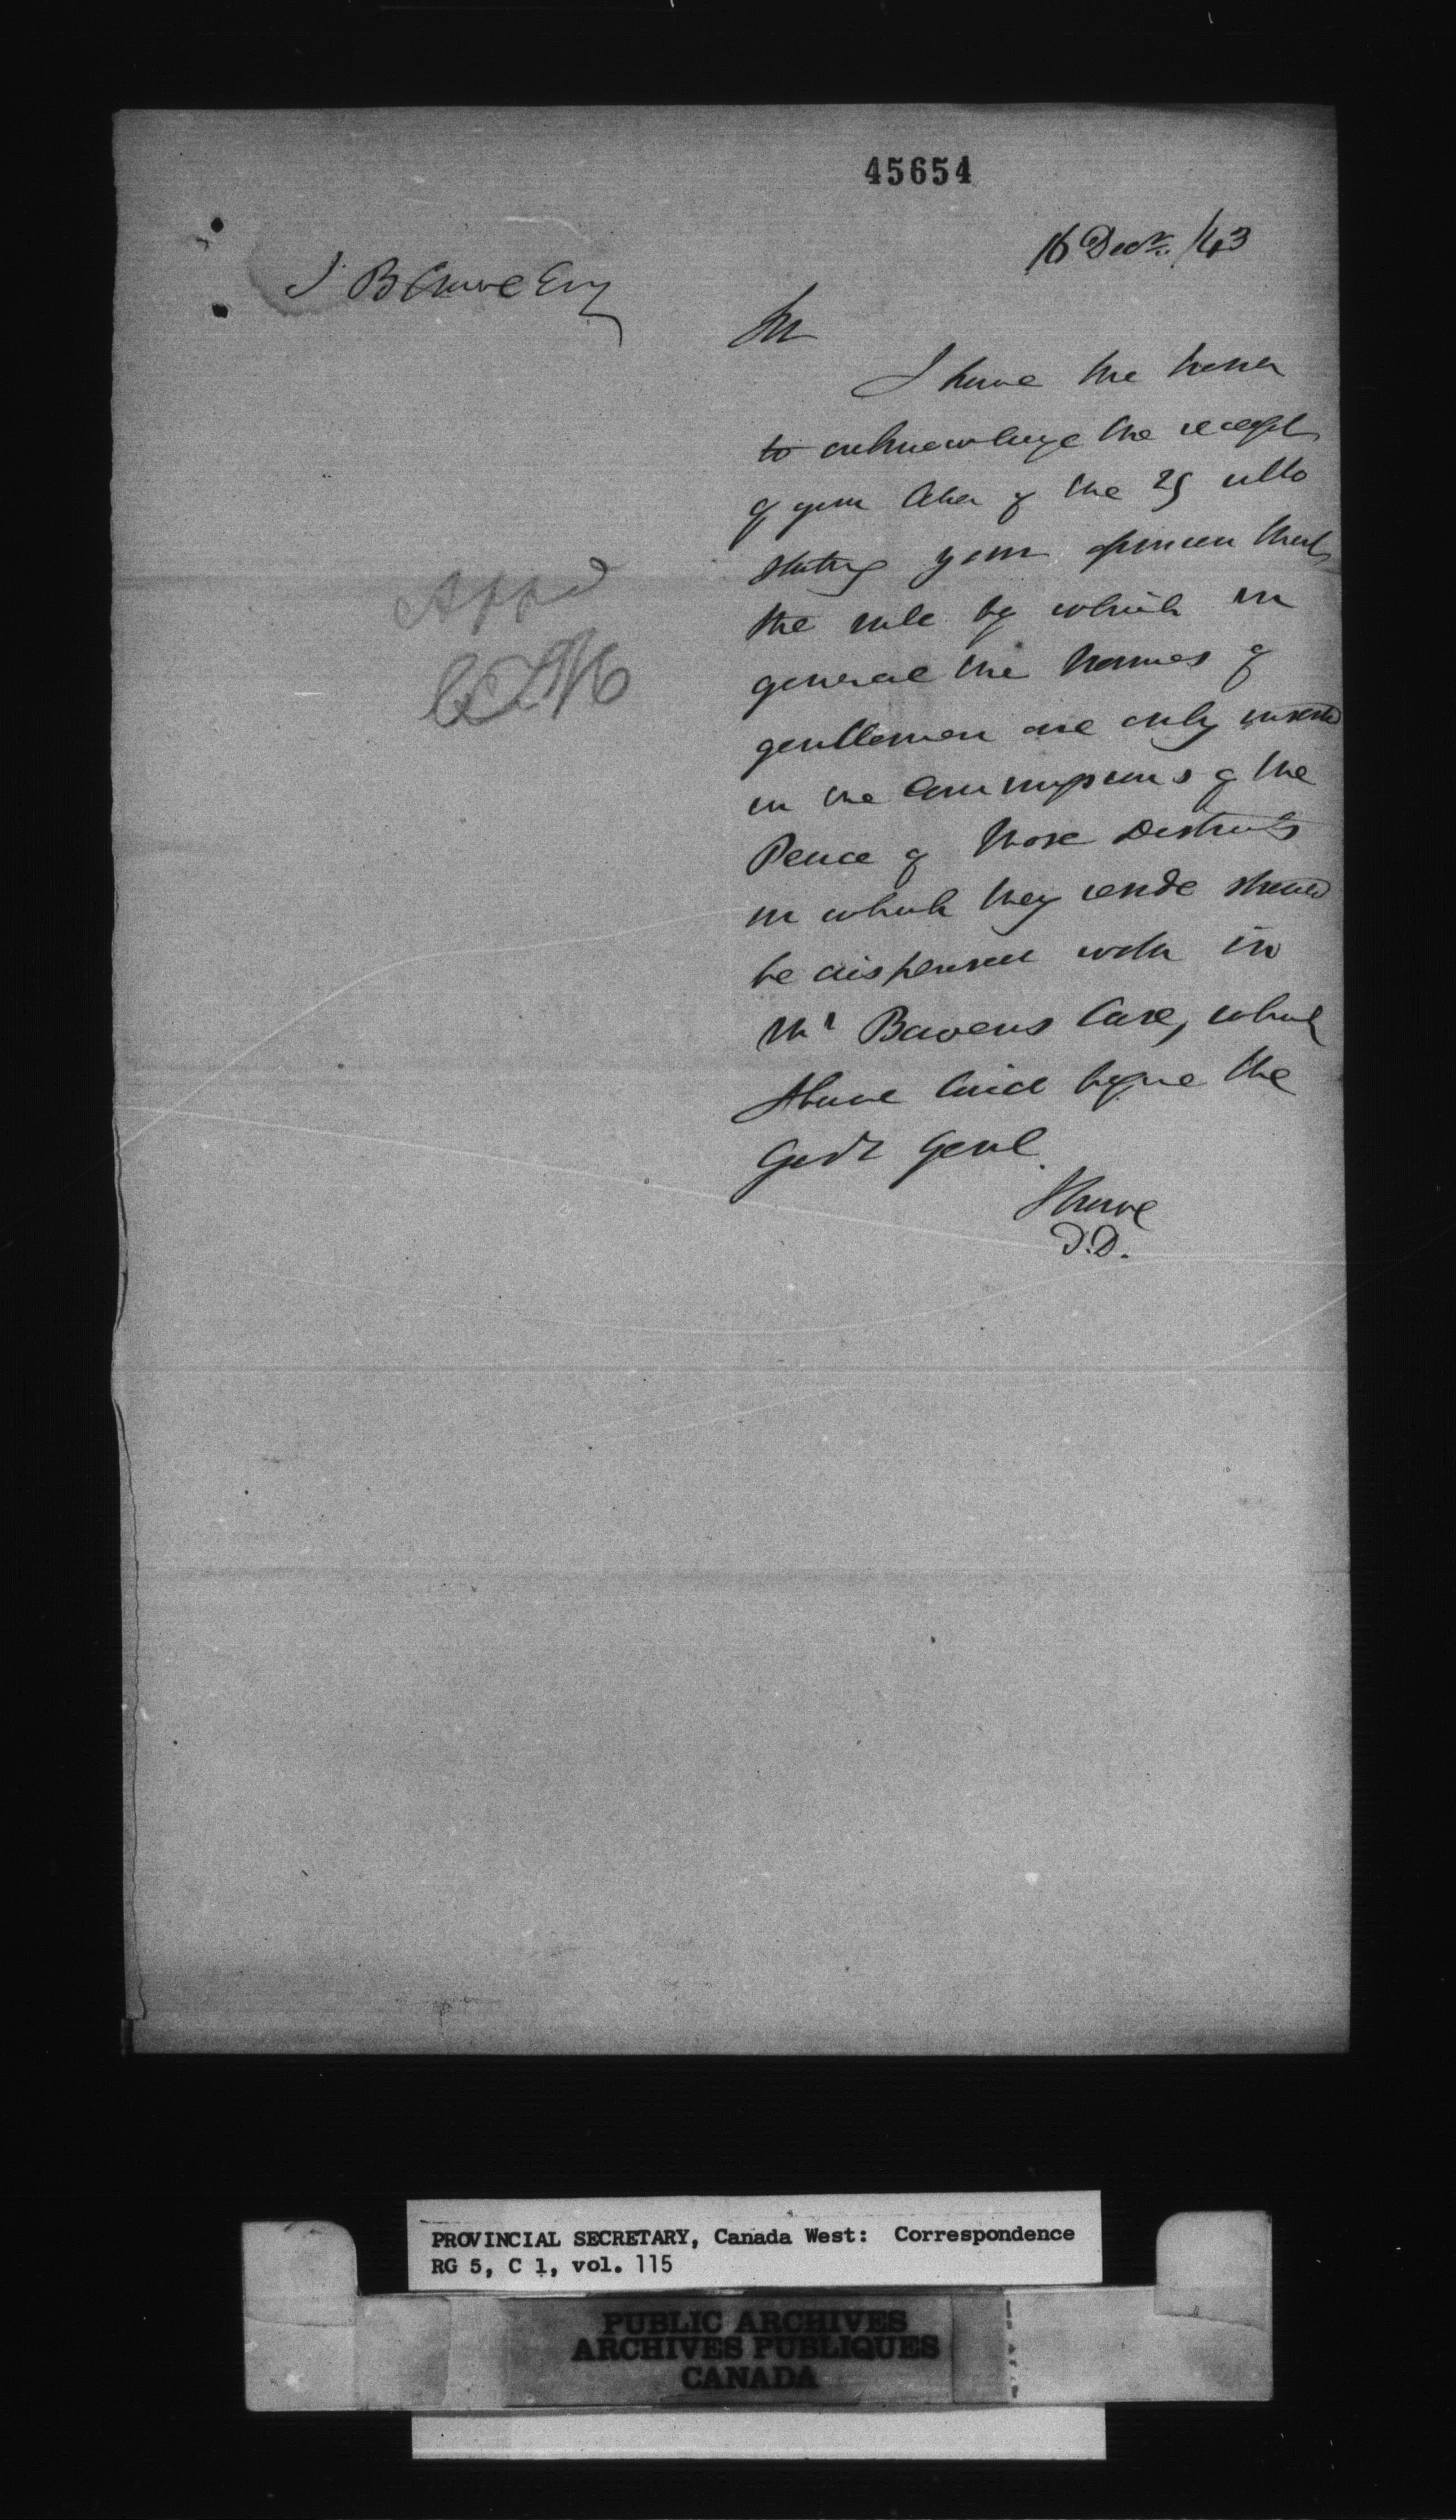 45654
16 Decr. /43
J B Crowe Esq
Sir
I have the honor
to acknowledge the receipt
of your letter of the 25 ulto
stating your opinion that
the rule by which in
general the names of
gentlemen are only inserted
in the Commissions of the
Peace of those Districts
in which they reside should
be dispensed with in
Mr Bowens Case, which
I have laid before the
Govr Genl.
I have
D.D.
Appd
PROVINCIAL SECRETARY, Canada West: Correspondence
RG 5, C 1, vol. 115
PUBLIC ARCHIVES
ARCHIVES PUBLIQUES
CANADA